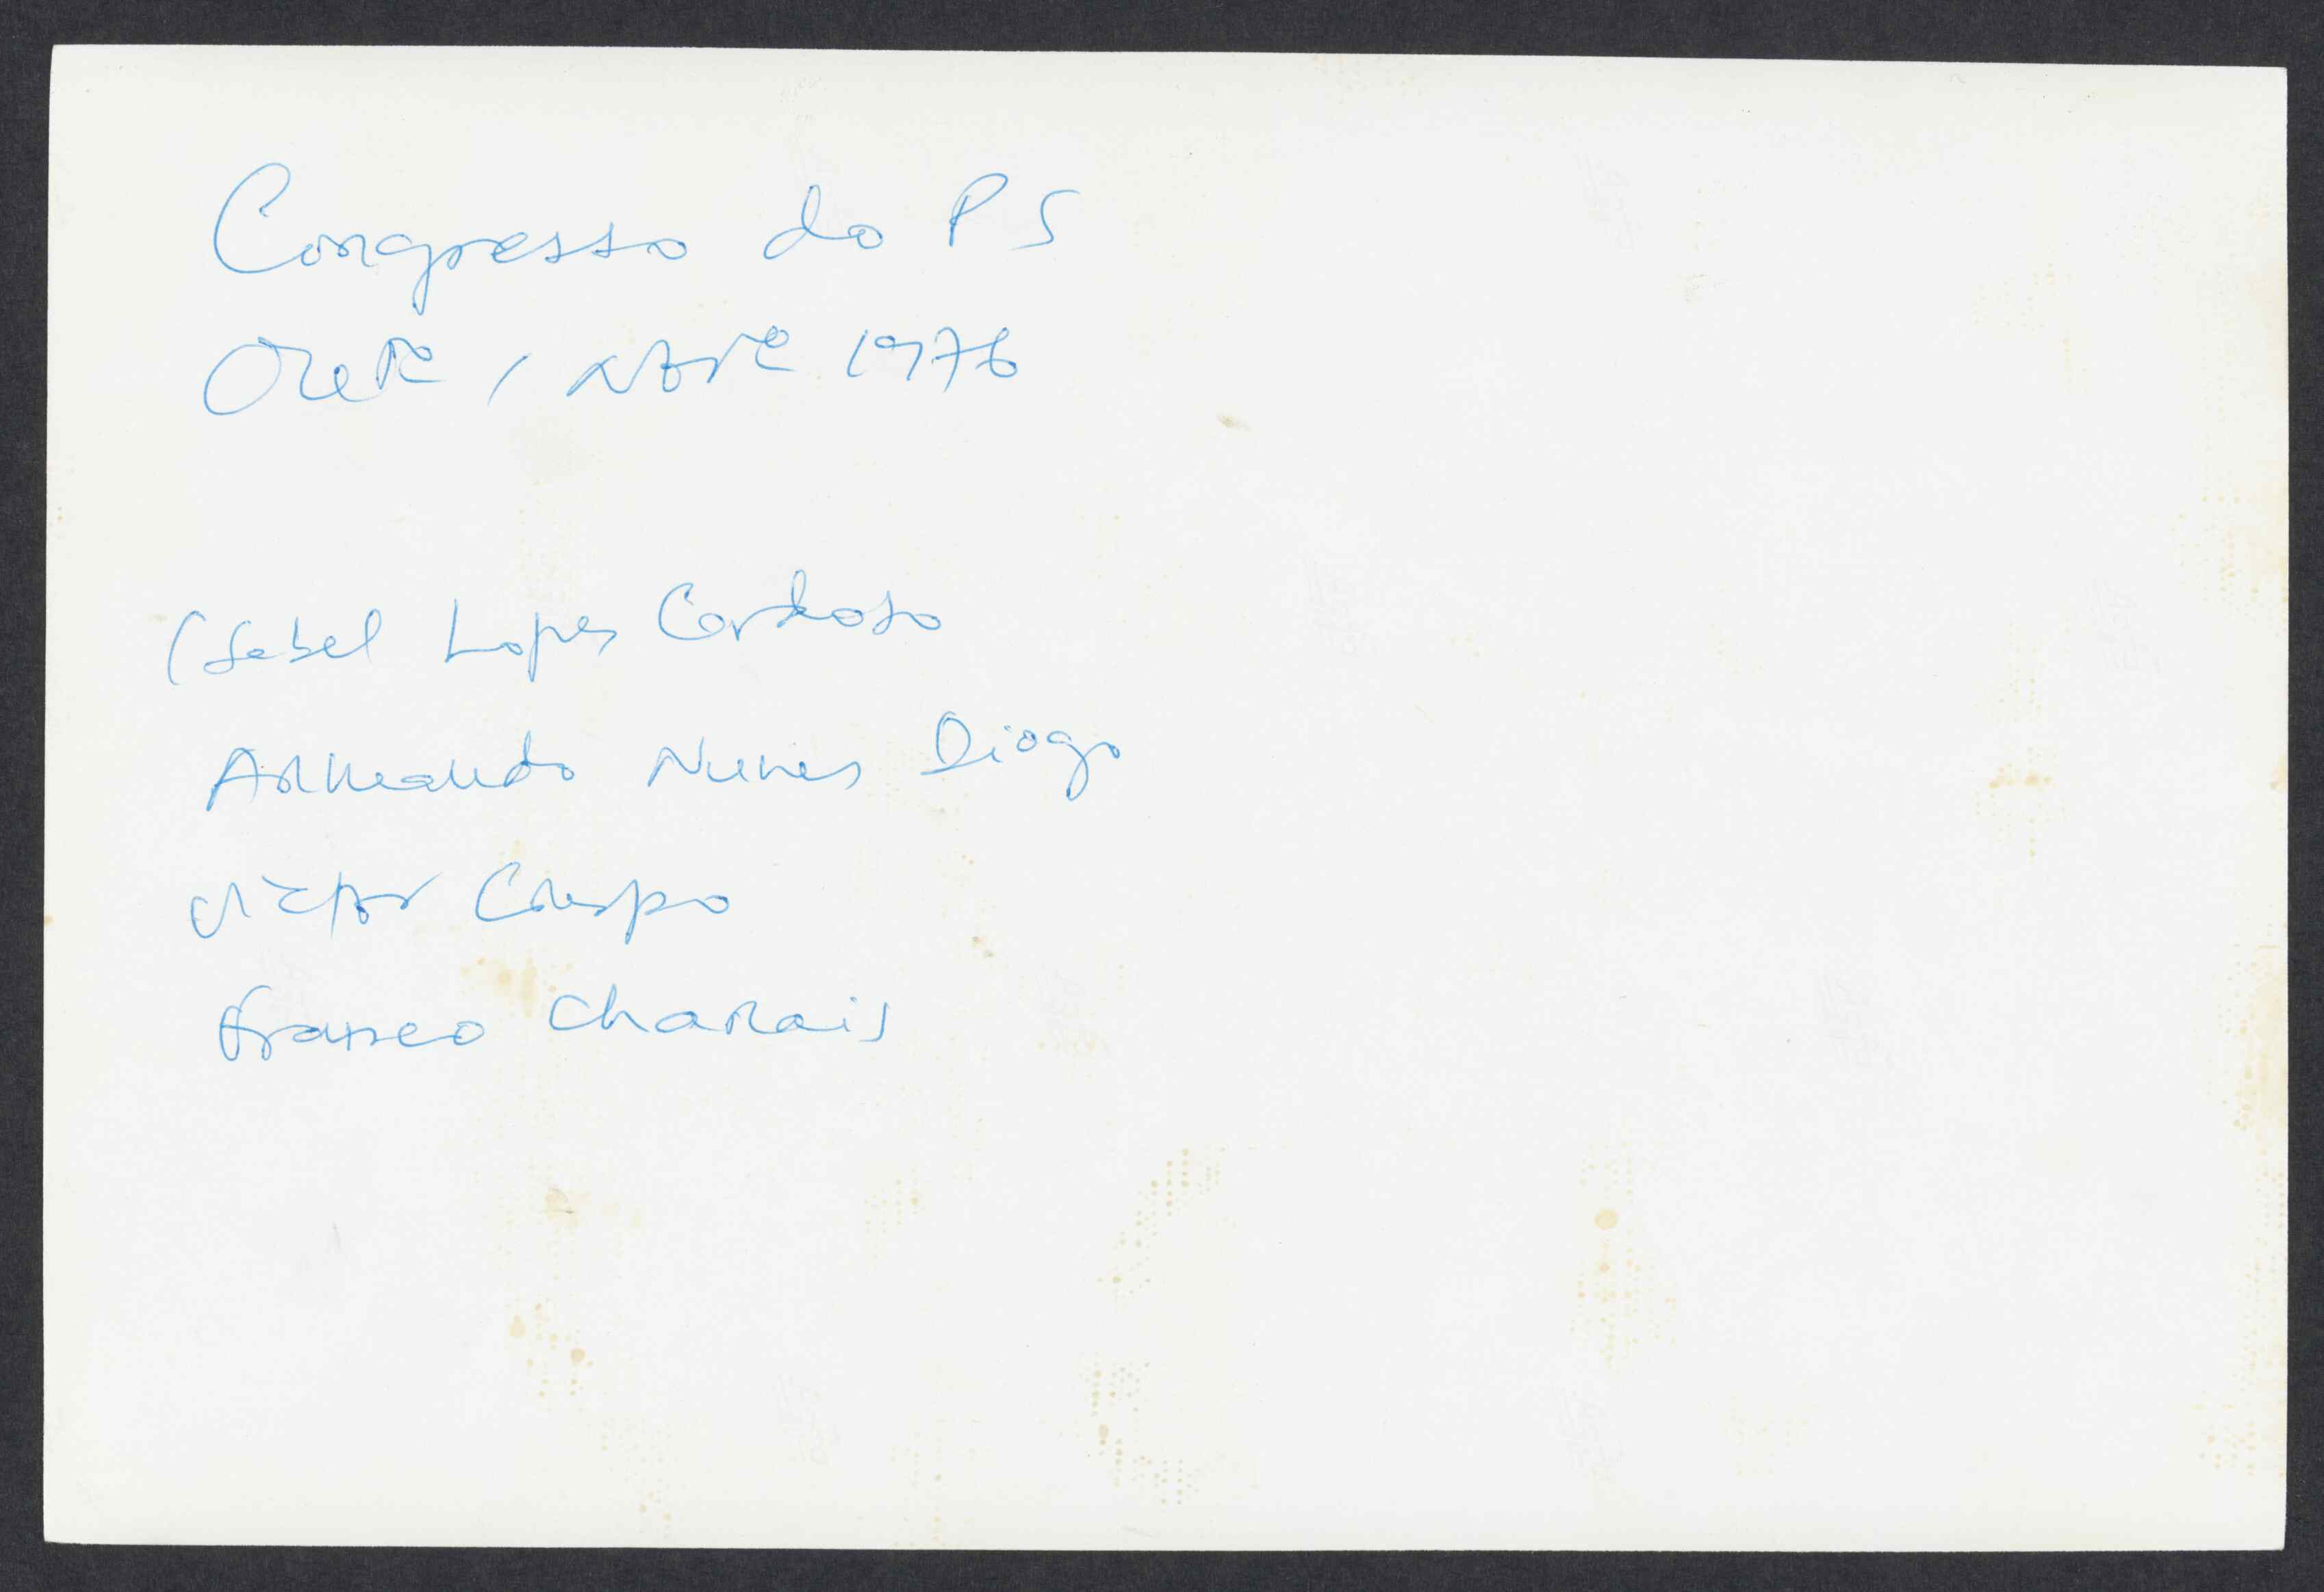 Congresso do PS
1976
Isabel Lopes Cardoso
Armando Nunes Diogo
Victor Crespo
Franco Charais